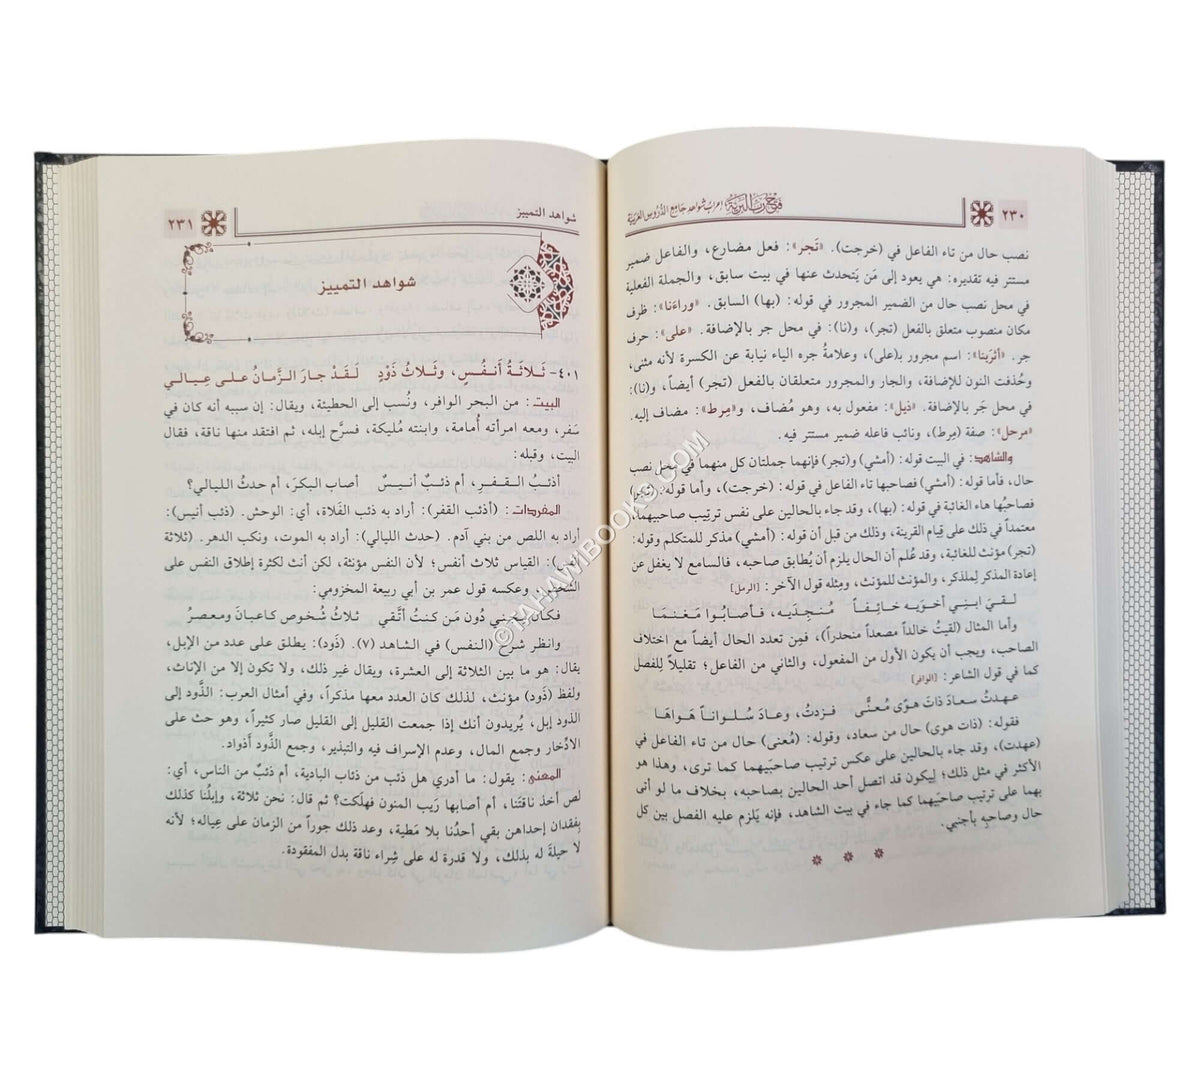 ٢٣٠ فتح رب البرية إعراب شواهد جامع الدروس العربية
نصب حال من تاء الفاعل في (خرجت). «تَجر»: فعل مضارع، والفاعل ضمير
مستتر فيه تقديره: هي يعود إلى مَن يَتحدث عنها في بيت سابق، والجملة الفعلية
في محل نصب حال من الضمير المجرور في قوله: (بها) السابق. «وراءَنا»: ظرف
مكان منصوب متعلق بالفعل (تجر)، و(نا): في محل جر بالإضافة. «على»: حرف
جر. «أثرَينا»: اسم مجرور بـ(على)، وعلامةُ جره الياء نيابة عن الكسرة لأنه مثنى،
وحُذفت النون للإضافة، والجار والمجرور متعلقان بالفعل (تجر) أيضاً، و(نا):
في محل جَر بالإضافة. «ذيل»: مفعول به، وهو مُضاف، و«مِرط»: مضاف إليه.
«مرحل»: صفة (مِرط)، ونائب فاعله ضمير مستتر فيه.
والشاهد: في البيت قوله: (أمشي) و(تجر) فإنهما جملتان كل منهما في محل نصب
حال، فأما قوله: (أمشي) فصاحبها تاء الفاعل في قوله: (خرجت)، وأما قوله: (تجر)
فصاحبُها هاء الغائبة في قوله: (بها)، وقد جاء بالحالين على نفس ترتِيب صاحبيهما،
معتمداً في ذلك على قِيام القرينة، وذلك من قبل أن قوله: (أمشي) مذكر للمتكلم وقوله:
(تجر) مؤنث للغائبة، وقد عُلم أن الحال يلزم أن يُطابق صاحبه، فالسامع لا يغفل عن
إعادة المذكر لِلمذكر، والمؤنث للمؤنث، ومِثله قول الآخر: [الرمل]
لـقـيَ ابـنِـي أخـوَيـه خـائِـفـاً مُـنـجِـدَيـه، فـأصـابُـوا مَـغـنـمَـا
وأما المثال (لقيتُ خالداً مصعداً منحدراً)، فمِن تعدد الحال أيضاً مع اختلاف
الصاحب، ويجب أن يكون الأول من المفعول، والثاني من الفاعل؛ تقليلاً لِلفصل
كما في قول الشاعر: [الوافر]
عـهـدتُ سعـادَ ذاتَ هـوًى مُـعـنًّـى فـزدتُ، وعـادَ سُـلـوانـاً هَـواهَـا
فقوله: (ذات هوى) حال من سعاد، وقوله: (مُعنى) حال من تاء الفاعل في
(عهدت)، وقد جاء بالحالين على عكس ترتيب صاحبَيهما كما ترى، وهذا هو
الأكثر في مثل ذلك؛ لِيكون قد اتصل أحد الحالين بصاحبه، بخلاف ما لو أتى
بهما على ترتيب صاحبَيهما كما جاء في بيت الشاهد، فإنه يَلزم عليه الفصل بين كل
حال وصاحبِه بأجنبي.
شواهد التمييز ٢٣١
شواهد التمييز
٤٠١- ثَـلاثـةُ أَنـفُـسٍ، وثَـلاثُ ذَوْدٍ لَـقَـدْ جـارَ الـزَّمـانُ عـلـى عِـيـالـي
البيت: من البحر الوافر، ونُسب إلى الحطيئة، ويقال: إن سببه أنه كان في
سَفر، ومعه امرأته أُمامة، وابنته مُليكة، فسرَّح إبله، ثم افتقد منها ناقة، فقال
البيت، وقبله:
أذئـبُ الـقـفـرِ، أم ذئـبٌ أنـيـسٌ أصاب البكرَ، أم حدثُ الليالي؟
المفردات: (أذئب القفر): أراد به ذئب الفَلاة، أي: الوحش. (ذئب أنيس):
أراد به اللص من بني آدم. (حدث الليالي): أراد به الموت، ونكب الدهر. (ثلاثة
القياس ثلاث أنفس؛ لأن النفس مؤنثة، لكن أنث لكثرة إطلاق النفس على
وعكسه قول عمر بن أبي ربيعة المخزومي:
فكـانَ دُونَ مَن كـنتُ أتَّقـي ثلاثُ شُخوصٍ كاعبانَ ومعصرُ
وانظر شرح (النفس) في الشاهد (٧). (ذَود): يطلق على عدد من الإبل،
يقال: هو ما بين الثلاثة إلى العشرة، ويقال غير ذلك، ولا تكون إلا من الإناث،
ولفظ (ذَود) مؤنث، لذلك كان العدد معها مذكراً، وفي أمثال العرب: الذَّود إلى
الذود إبل، يُريدون أنك إذا جمعت القليل إلى القليل صار كثيراً، وهو حث على
الادِّخار وجمع المال، وعدم الإسراف فيه والتبذير، وجمع الذَّود أَذواد.
المعنى: يقول: ما أدري هل ذئب من ذئاب البادية، أم ذئبٌ من الناس، أي:
لص أخذ ناقتَنا، أم أصابها رَيب المنون فهلَكت؟ ثم قال: نحن ثلاثة، وإبلُنا كذلك
بِفقدان إحداهن بقي أحدُنا بلا مَطية، وعد ذلك جوراً من الزمان على عِياله؛ لأنه
لا حيلةَ له بذلك، ولا قدرة له على شِراء ناقة بدل المفقودة.
©TAHAWIBOOKS.COM